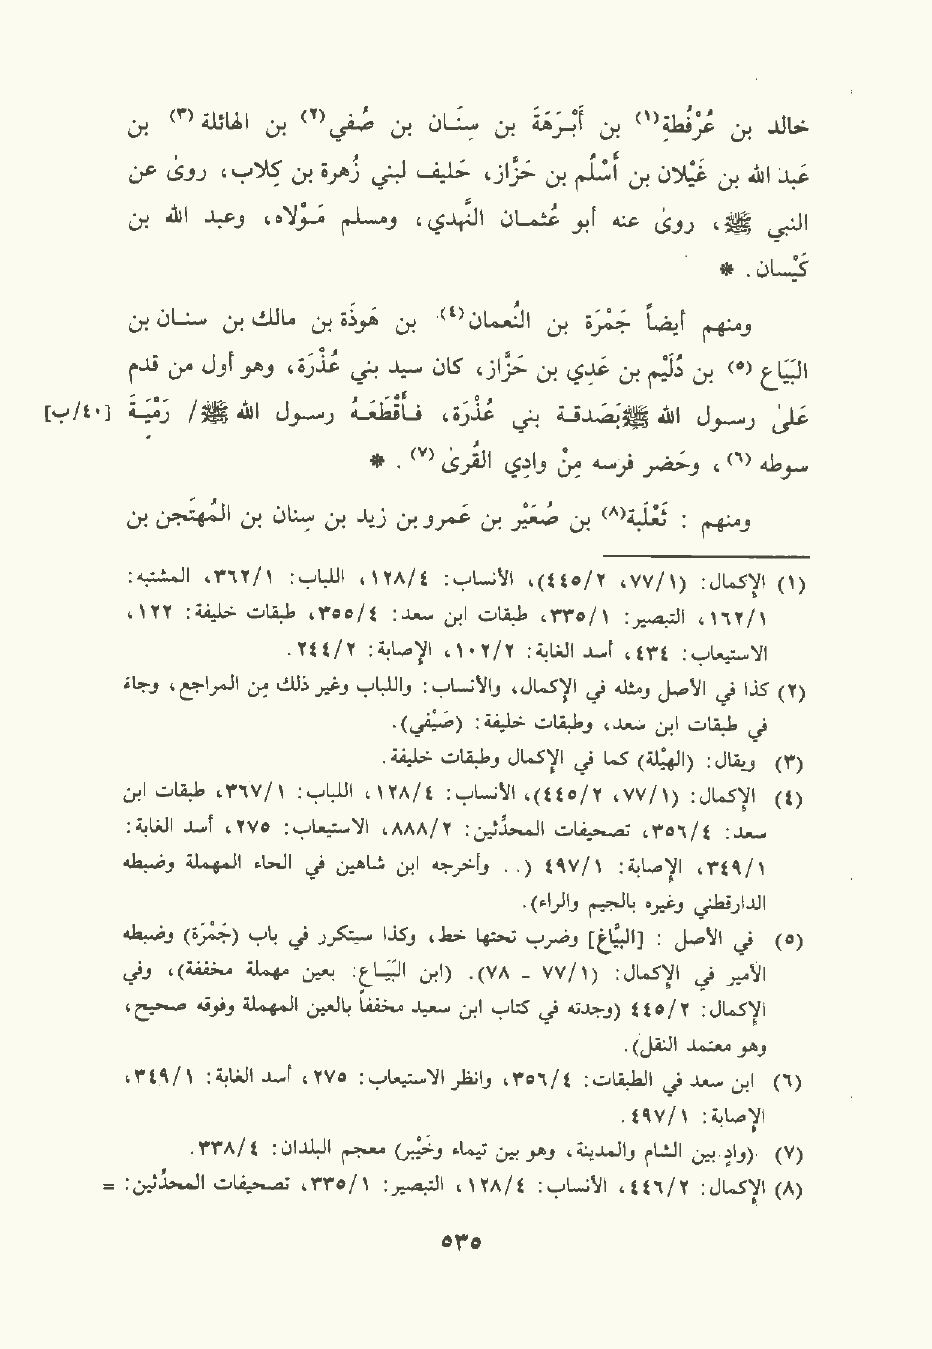 خالد بن عُرْفُطةِ(١) بن أَبْـرَهَةَ بن سِنَـان بن صُفي(٢) بن الهائلة(٣) بن
عَبد الله بن غَيْلان بن أسْلُم بن حَزَّاز، حَليف لبني زُهرة بن كِلاب، روىٰ عن
النبي ﷺ، روىٰ عنه أبو عُثمان النَّهدي، ومسلم مَـوْلاه، وعبد الله بن
كَيْسان. *
ومنهم أيضاً جَمْرَة بن النُعمان(٤) بن هَوذَة بن مالك بن سنـان بن
البَيَّاع(٥) بن دُلَيْم بن عَدِي بن حَزَّاز، كان سيد بني عُذْرَة، وهو أول من قدم
عَلىٰ رسـول الله ﷺبَصَدقـة بني عُذْرَة، فـأَقْطَعَـهُ رسـول الله ﷺ/ رَمْيَـةَ [٤٠/ب]
سوطه(٦)، وحَضر فرسه مِنْ وادِي القُرىٰ(٧). *
ومنهم : ثَعْلَبة(٨) بن صُعَيْر بن عَمرو بن زيد بن سِنان بن المُهتَجن بن
(١) الإكمال: (٧٧/١، ٤٤٥/٢)، الأنساب: ١٢٨/٤، اللباب: ٣٦٢/١، المشتبه:
١٦٢/١، التبصير: ٣٣٥/١، طبقات ابن سعد: ٣٥٥/٤، طبقات خليفة: ١٢٢،
الاستيعاب: ٤٣٤، أسد الغابة: ١٠٢/٢، الإصابة: ٢٤٤/٢.
(٢) كذا في الأصل ومثله في الإكمال، والأنساب: واللباب وغير ذلك مِن المراجع، وجاءَ
في طبقات ابن سَعد، وطبقات خليفة: (صَيْفي).
(٣) ويقال: (الهيْلة) كما في الإكمال وطبقات خليفة.
(٤) الإكمال: (٧٧/١، ٤٤٥/٢)، الأنساب: ١٢٨/٤، اللباب: ٣٦٧/١، طبقات ابن
سعد: ٣٥٦/٤، تصحيفات المحدِّثين: ٨٨٨/٢، الاستيعاب: ٢٧٥، أسد الغابة:
٣٤٩/١، الإصابة: ٤٩٧/١ (.. وأخرجه ابن شاهين في الحاء المهملة وضبطه
الدارقطني وغيره بالجيم والراء).
(٥) في الأصل : [البَيَّاغ] وضرب تحتها خط، وكذا سيتكرر في باب (جَمْرَة) وضبطه
الأمير في الإكمال: (٧٧/١ - ٧٨). (ابن البَيَّـاع: بعين مهملة مخففة)، وفي
الإكمال: ٤٤٥/٢ (وجدته في كتاب ابن سعيد مخففاً بالعين المهملة وفوقه صحيح،
وهو معتمد النقل).
(٦) ابن سعد في الطبقات: ٣٥٦/٤، وانظر الاستيعاب: ٢٧٥، أسد الغابة: ٣٤٩/١،
الإصابة: ٤٩٧/١.
(٧) (وادٍ بين الشام والمدينة، وهو بين تيماء وخَيْبر) معجم البلدان: ٣٣٨/٤.
(٨) الإكمال: ٤٤٦/٢، الأنساب: ١٢٨/٤، التبصير: ٣٣٥/١، تصحيفات المحدِّثين: =
٥٣٥